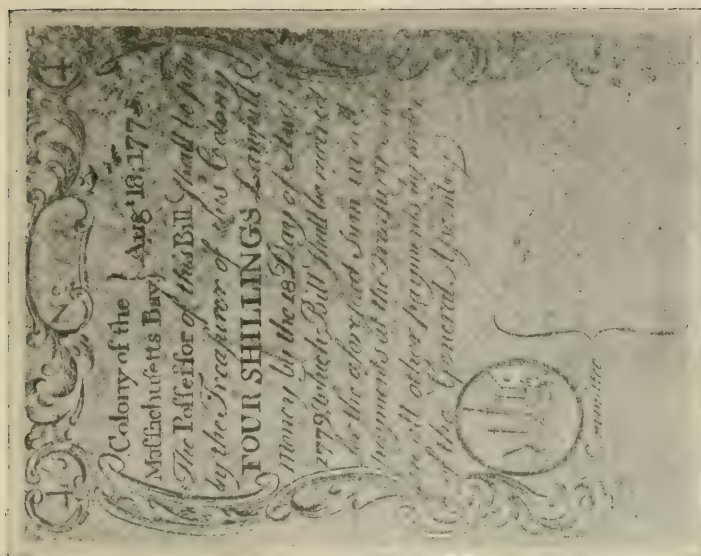 4 N 4
Colony of the } Aug.t 18: 1775
Maſſachuſetts Bay }
The Poſſeſſor of this Bill ſhall be paid
by the Treaſurer of this Colony
FOUR SHILLINGS Lawfull
Money by the 18 Day of Aug.t
1779 which Bill ſhall be received
for the aforeſaid Sum in all
payments at the Treaſury and
in all other payments by order
of the General Aſsembly
Committee